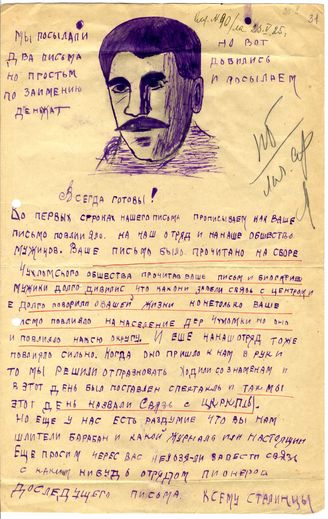 Мы посылали
два писма
но простым
по заимению
денжат
но вот
добились
и посылаем
31
Всегда готовы!
До первых строках нашего письма прописываем как ваше
письмо повлияло. на наш отряд и на наше общество
мужиков. Ваше письмо было прочитано на сборе
Чухломского общества прочитав ваше письм и биографию
мужики долго
связь с центром и
е долго говорили о вашей жизни конетолько ваше
письмо повлияло на население дер Чухломки но оно
и повлияло на всю округу. И еще на наш отряд тоже
повлияло сильно. Когда оно пришло к нам в руки
то мы решили отпраздновать ходили со знаменам и
в этот день был поставлен спектакль и так мы
этот день назвали Связь с ЦКРКП(б).
Но еще у нас есть раздумие что вы нам
шлители барабан и какой журналь или настоящии
Еще просим через вас нельзя-ли завести связь
с каким нибудь отрядом пионеров
до следущего писма. К сему Сталинцы